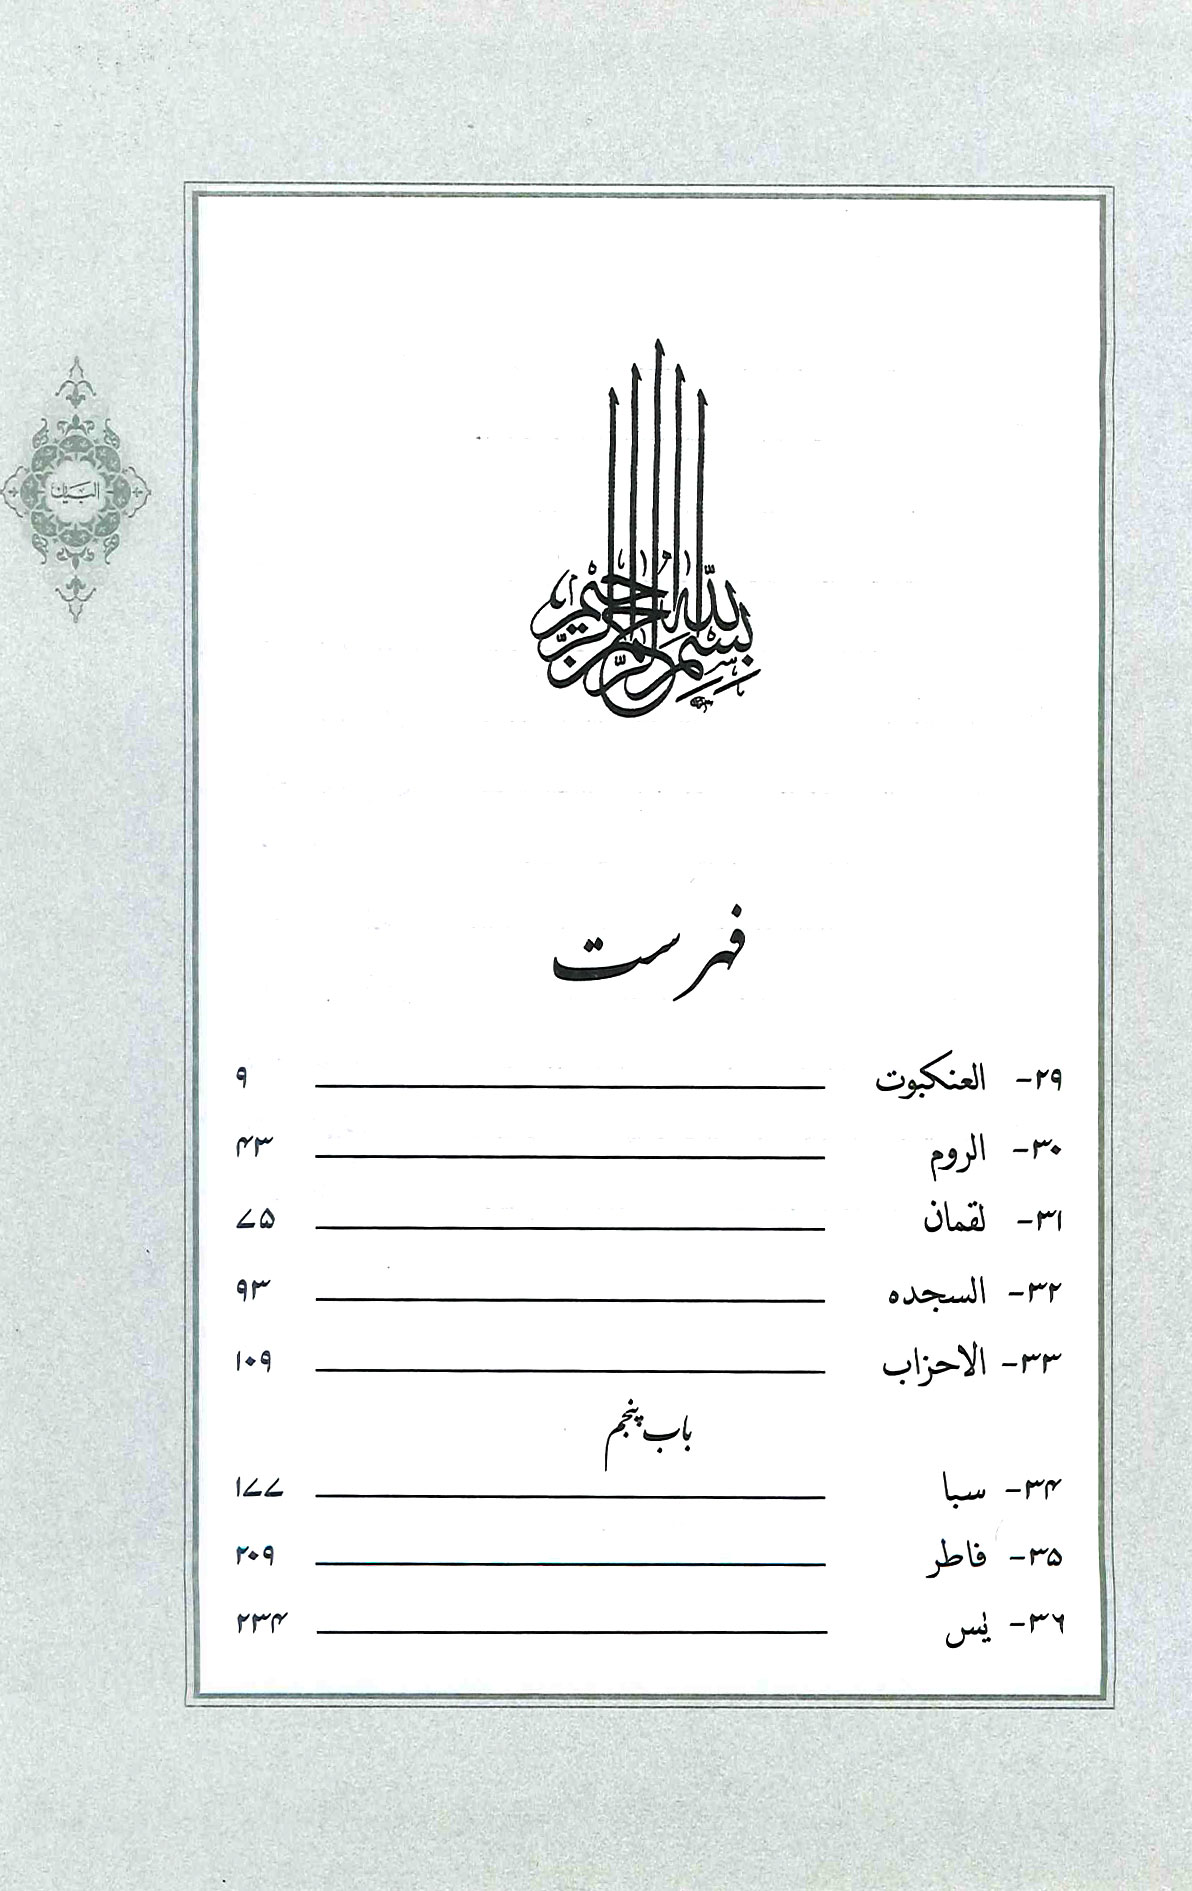 البیان
بسم الله الرحمن الرحيم
فہرست
۲۹- العنکبوت ۹
۳۰- الروم ۴۳
۳۱- لقمان ۷۵
۳۲- السجدہ ۹۳
۳۳- الاحزاب ۱۰۹
باب پنجم
۳۴- سبا ۱۷۷
۳۵- فاطر ۲۰۹
۳۶- یٰس ۲۳۴